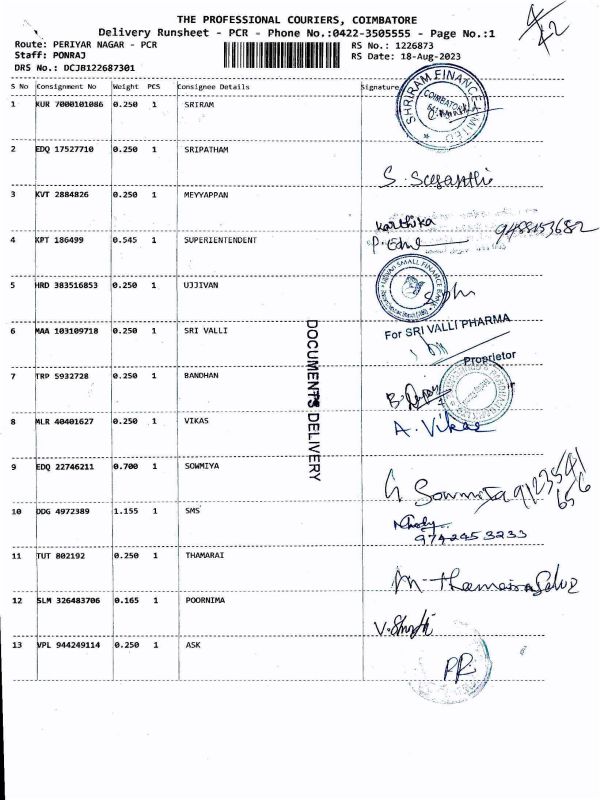 THE PROFESSIONAL COURIERS, COIMBATORE
Delivery Runsheet - PCR - Phone No.:0422-3505555 - Page No.:1
Route: PERIYAR NAGAR - PCR RS No.: 1226873
Staff: PONRAJ RS Date: 18-Aug-2023
DRS No.: DCJB122687301
4/42
S No Consignment No Weight PCS Consignee Details Signature
1 KUR 7000101086 0.250 1 SRIRAM
SHRIRAM FINANCE LIMITED
COIMBATORE
2 EDQ 17527710 0.250 1 SRIPATHAM
S.
3 KVT 2884826 0.250 1 MEYYAPPAN
Karthika
4 KPT 186499 0.545 1 SUPERIENTENDENT
9488153682
5 HRD 383516853 0.250 1 UJJIVAN
UJJIVAN SMALL FINANCE BANK
6 MAA 103109718 0.250 1 SRI VALLI
For SRI VALLI PHARMA
Proprietor
7 TRP 5932728 0.250 1 BANDHAN
8 MLR 40401627 0.250 1 VIKAS
A. Vikas
9 EDQ 22746211 0.700 1 SOWMIYA
Sowmiya
10 DDG 4972389 1.155 1 SMS
9742453233
11 TUT 802192 0.250 1 THAMARAI
12 SLM 326483706 0.165 1 POORNIMA
13 VPL 944249114 0.250 1 ASK
DOCUMENTS DELIVERY